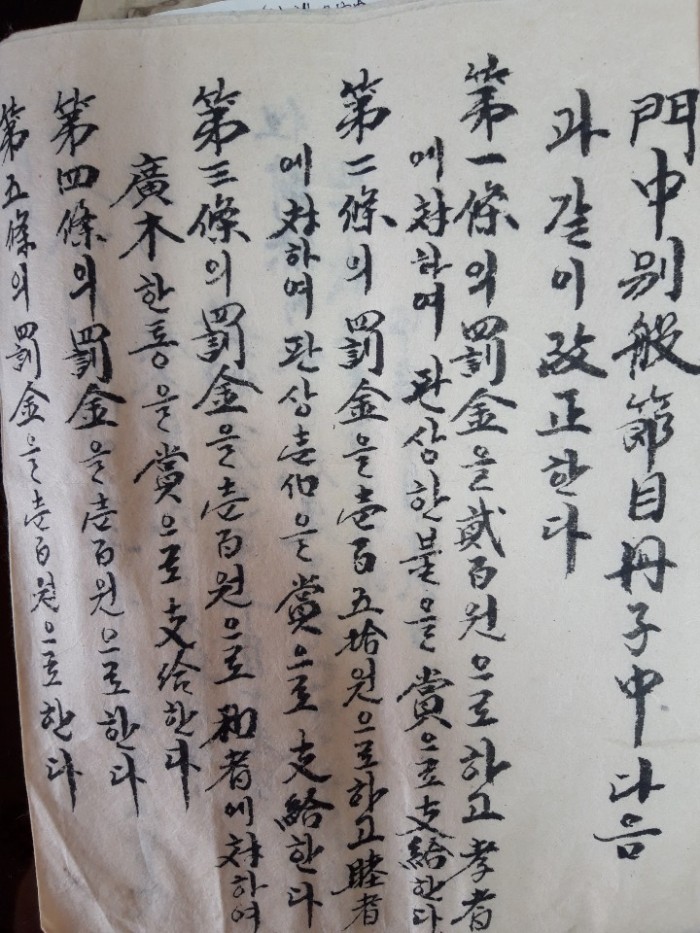 門中別般節目册子中 다음
과 같이 改正한다
第一條의 罰金을 貳百원으로하고 孝者
에 対하여 판상한불을 賞으로 支給한다
第二條의 罰金을 壹百五拾원으로하고 睦者
에 対하여 판상壹
을 賞으로 支給한다
第三條의 罰金을 壹百원으로 和者에 対하여
廣木한통을 賞으로 支給한다
第四條의 罰金을 壹百원으로한다
第五條의 罰金을 壹百원으로한다